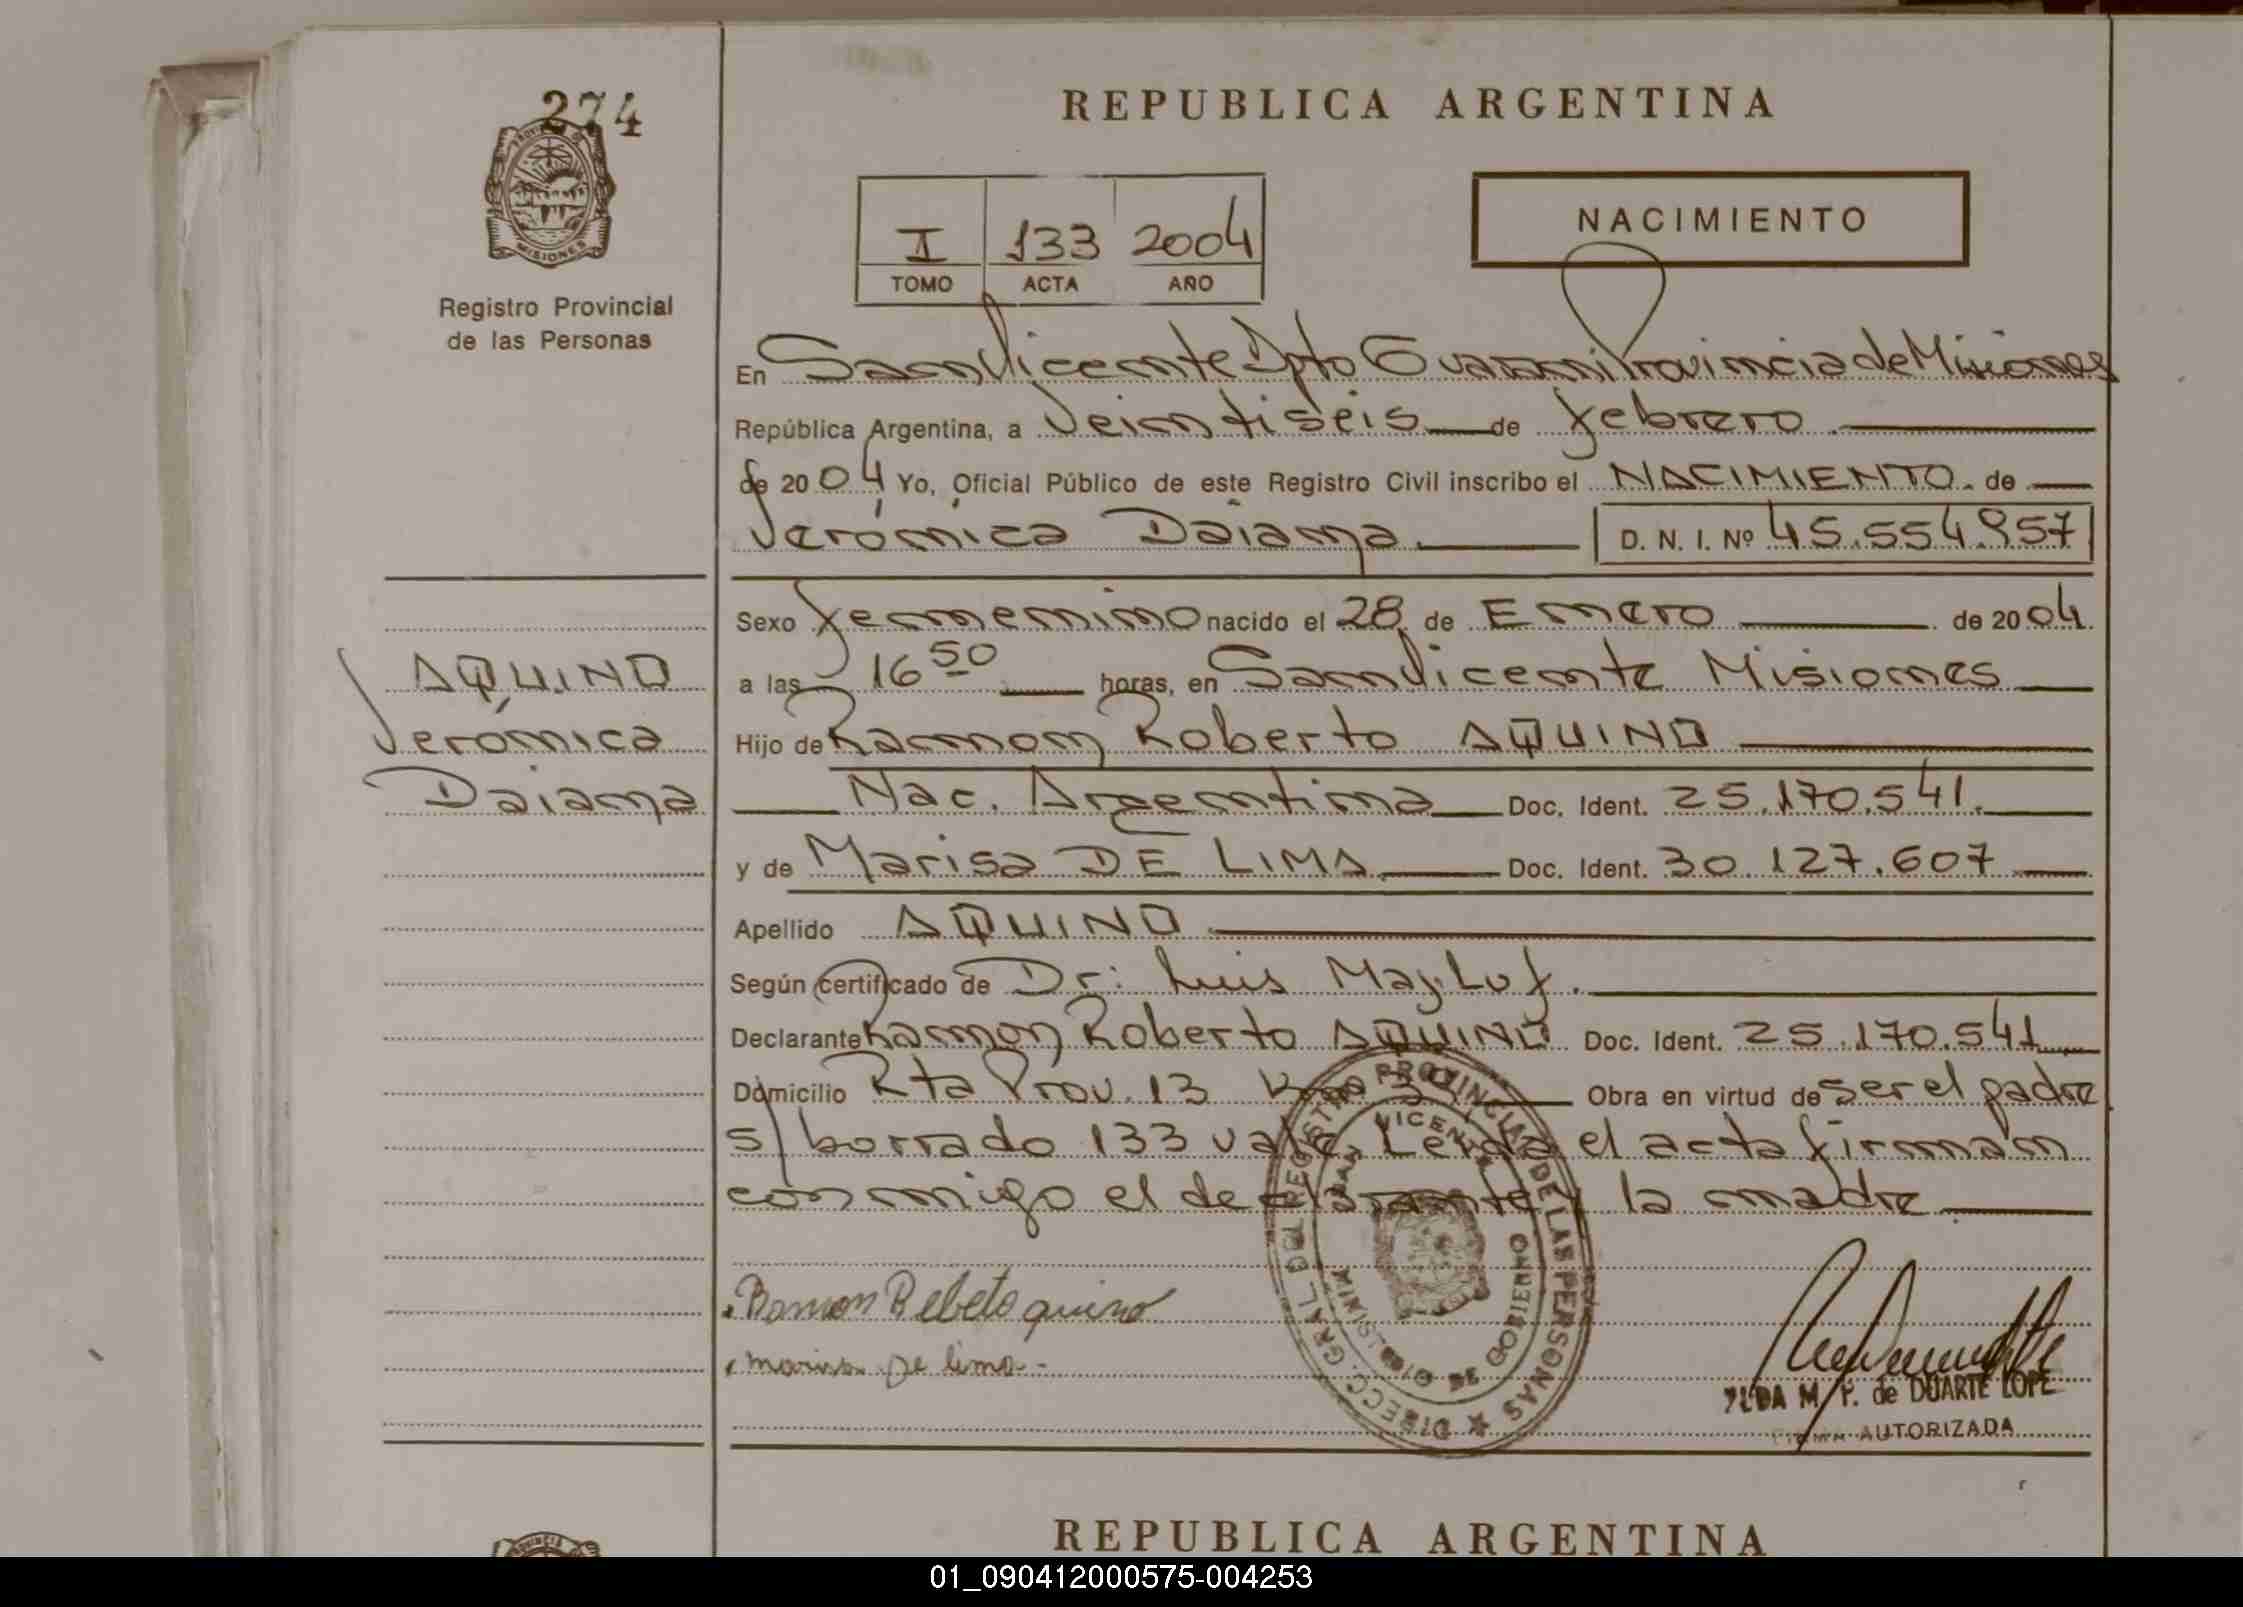 274
PROVINCIA DE
MISIONES
Registro Provincial
de las Personas
AQUINO
Verónica
Daiana
REPUBLICA ARGENTINA
I 133 2004
TOMO ACTA AÑO
NACIMIENTO
En San Vicente Dpto Guarani Provincia de Misiones
República Argentina, a Veintiseis de febrero
de 2004 Yo, Oficial Público de este Registro Civil inscribo el NACIMIENTO de
Verónica Daiana D. N. I. Nº 45.554.957
Sexo femenino nacido el 28 de Enero de 2004
a las 16 50 horas, en San Vicente Misiones
Hijo de Ramon Roberto AQUINO
Nac. Argentina Doc. Ident. 25.170.541.
y de Marisa DE LIMA Doc. Ident. 30.127.607
Apellido AQUINO
Según certificado de Dr: Luis Mayluf.
Declarante Ramon Roberto AQUINO Doc. Ident. 25.170.541
Domicilio Rta Prov. 13 Km Obra en virtud de ser el padre
s/ borrado 133 vale. Leída el acta firman
conmigo el declarante y la madre
marisa de lima
DIRECC. GRAL DEL REGISTRO PROVINCIAL DE LAS PERSONAS
SAN VICENTE
MINISTERIO DE GOBIERNO
M. P. de DUARTE LOPE
FIRMA AUTORIZADA
REPUBLICA ARGENTINA
01_090412000575-004253